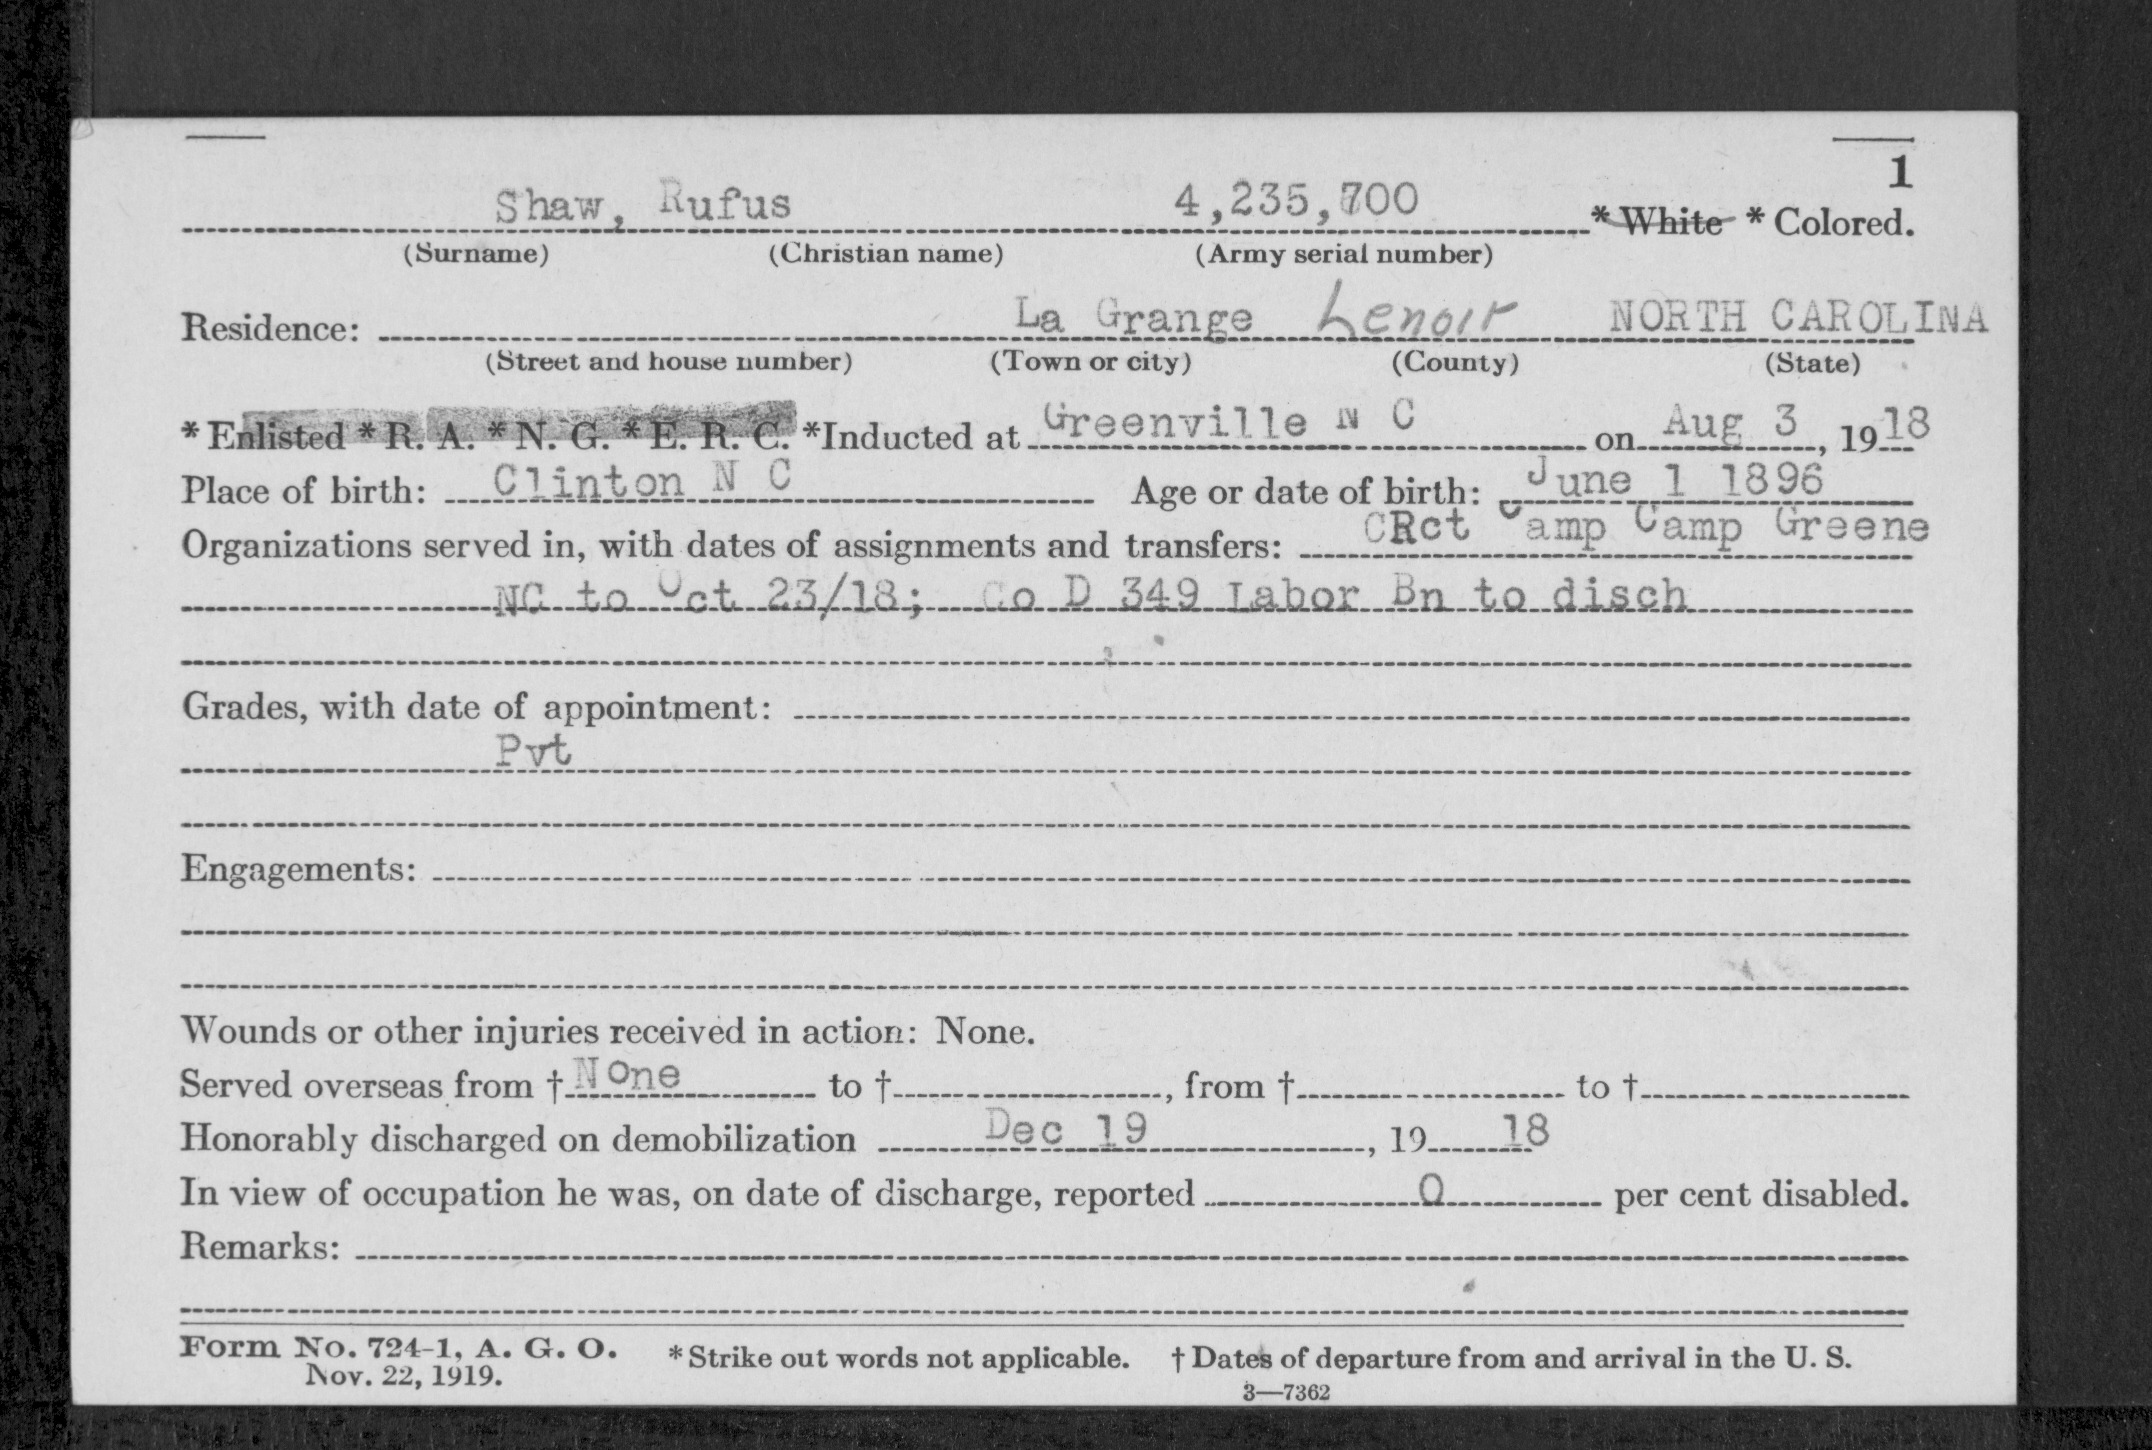 1
Shaw, Rufus 4,235,700 * White * Colored.
(Surname) (Christian name) (Army serial number)
Residence: La Grange Lenoir NORTH CAROLINA
(Street and house number) (Town or city) (County) (State)
* Enlisted * R. A. * N. G. * E. R. C. *Inducted at Greenville N C on Aug 3, 1918
Place of birth: Clinton N C Age or date of birth: June 1 1896
Organizations served in, with dates of assignments and transfers: CRct Camp Camp Greene
NC to Oct 23/18; Co D 349 Labor Bn to disch
Grades, with date of appointment:
Pvt
Engagements:
Wounds or other injuries received in action: None.
Served overseas from † None to †, from † to †
Honorably discharged on demobilization Dec 19, 19 18
In view of occupation he was, on date of discharge, reported 0 per cent disabled.
Remarks:
Form No. 724-1, A. G. O. * Strike out words not applicable. † Dates of departure from and arrival in the U. S.
Nov. 22, 1919.
3—7362